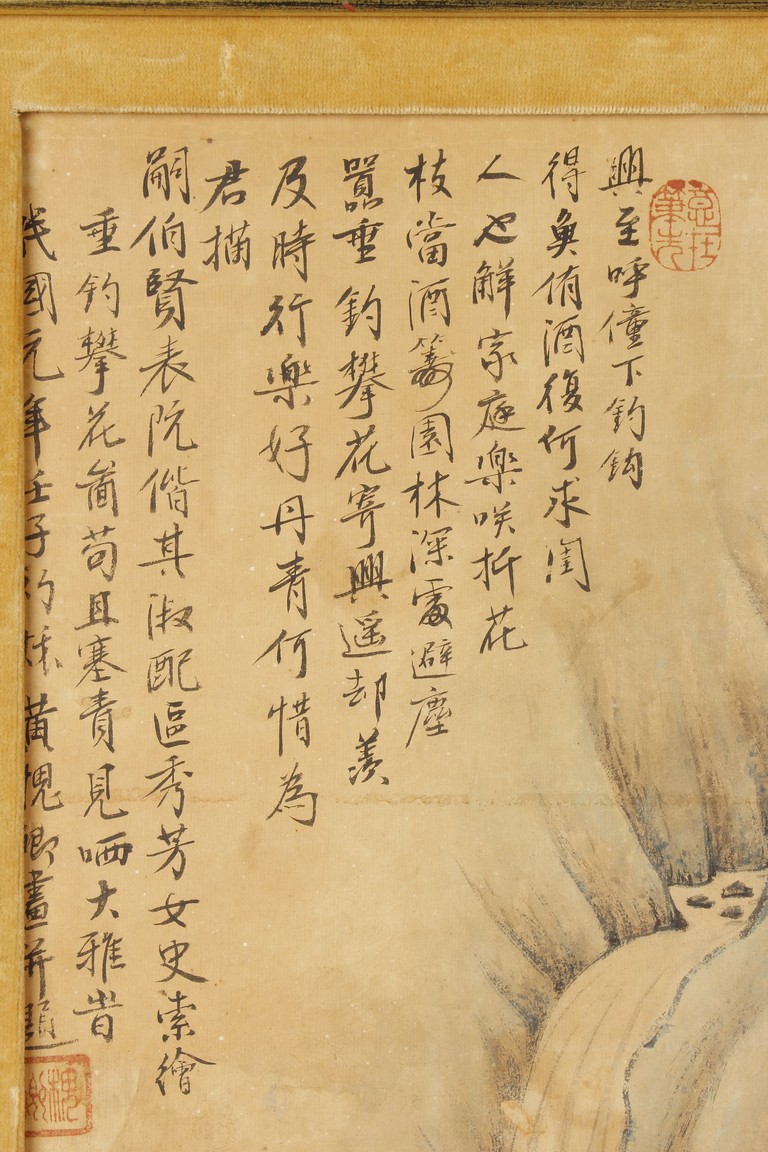 意在筆先
興至呼僮下釣鈎
得魚侑酒復何求閨
人也解家庭樂咲折花
枝當酒籌園林深處避塵
囂垂釣攀花寄興遥却羨
及時行樂好丹青何惜為
君描
嗣伯賢表阮偕其淑配區秀芳女史索繪
垂釣攀花啚苟且塞責見哂大雅旹
民國元年壬子初秋黃槐卿畫并題
槐卿